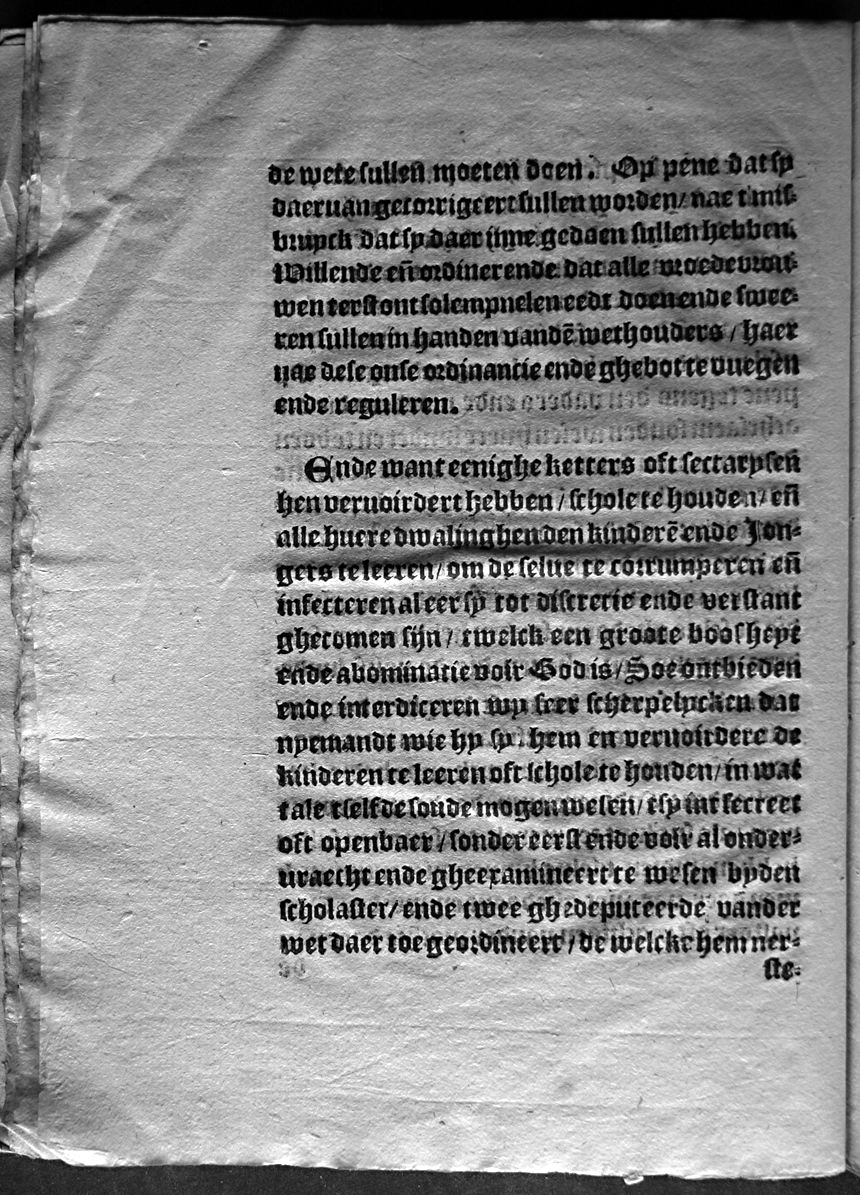 de wete sullen moeten doen. Op pene dat sy
daeruan gecorrigeert sullen worden/ nae t mis-
bruyck dat sy daer inne gedaen sullen hebben.
Willende eñ ordinerende dat alle vroedevrou-
wen terstont solempnelen eedt doen ende swee-
ren sullen in handen vandē wethouders / haer
nae dese onse ordinantie ende ghebot te vuegen
ende reguleren.
Ende want eenighe ketters oft sectarysen
hen veruoirdert hebben / schole te houden/ eñ
alle huere dwalinghen den kinderē ende Jon-
gers te leeren/ om de selue te corrumperen eñ
infecteren al eer sy tot discretie ende verstant
ghecomen sijn/ twelck een groote boosheyt
ende abominatie voir God is/ Soe ontbieden
ende interdiceren wy seer scherpelycken dat
nyemandt wie hy sy hem en veruoirdere de
kinderen te leeren oft schole te houden/ in wat
tale tselfde soude mogen wesen/ tsy int secreet
oft openbaer/ sonder eerst ende voir al onder-
uraecht ende gheexamineert te wesen byden
scholaster/ ende twee ghedeputeerde vander
wet daer toe geordineert / de welcke hem ner-
ste-